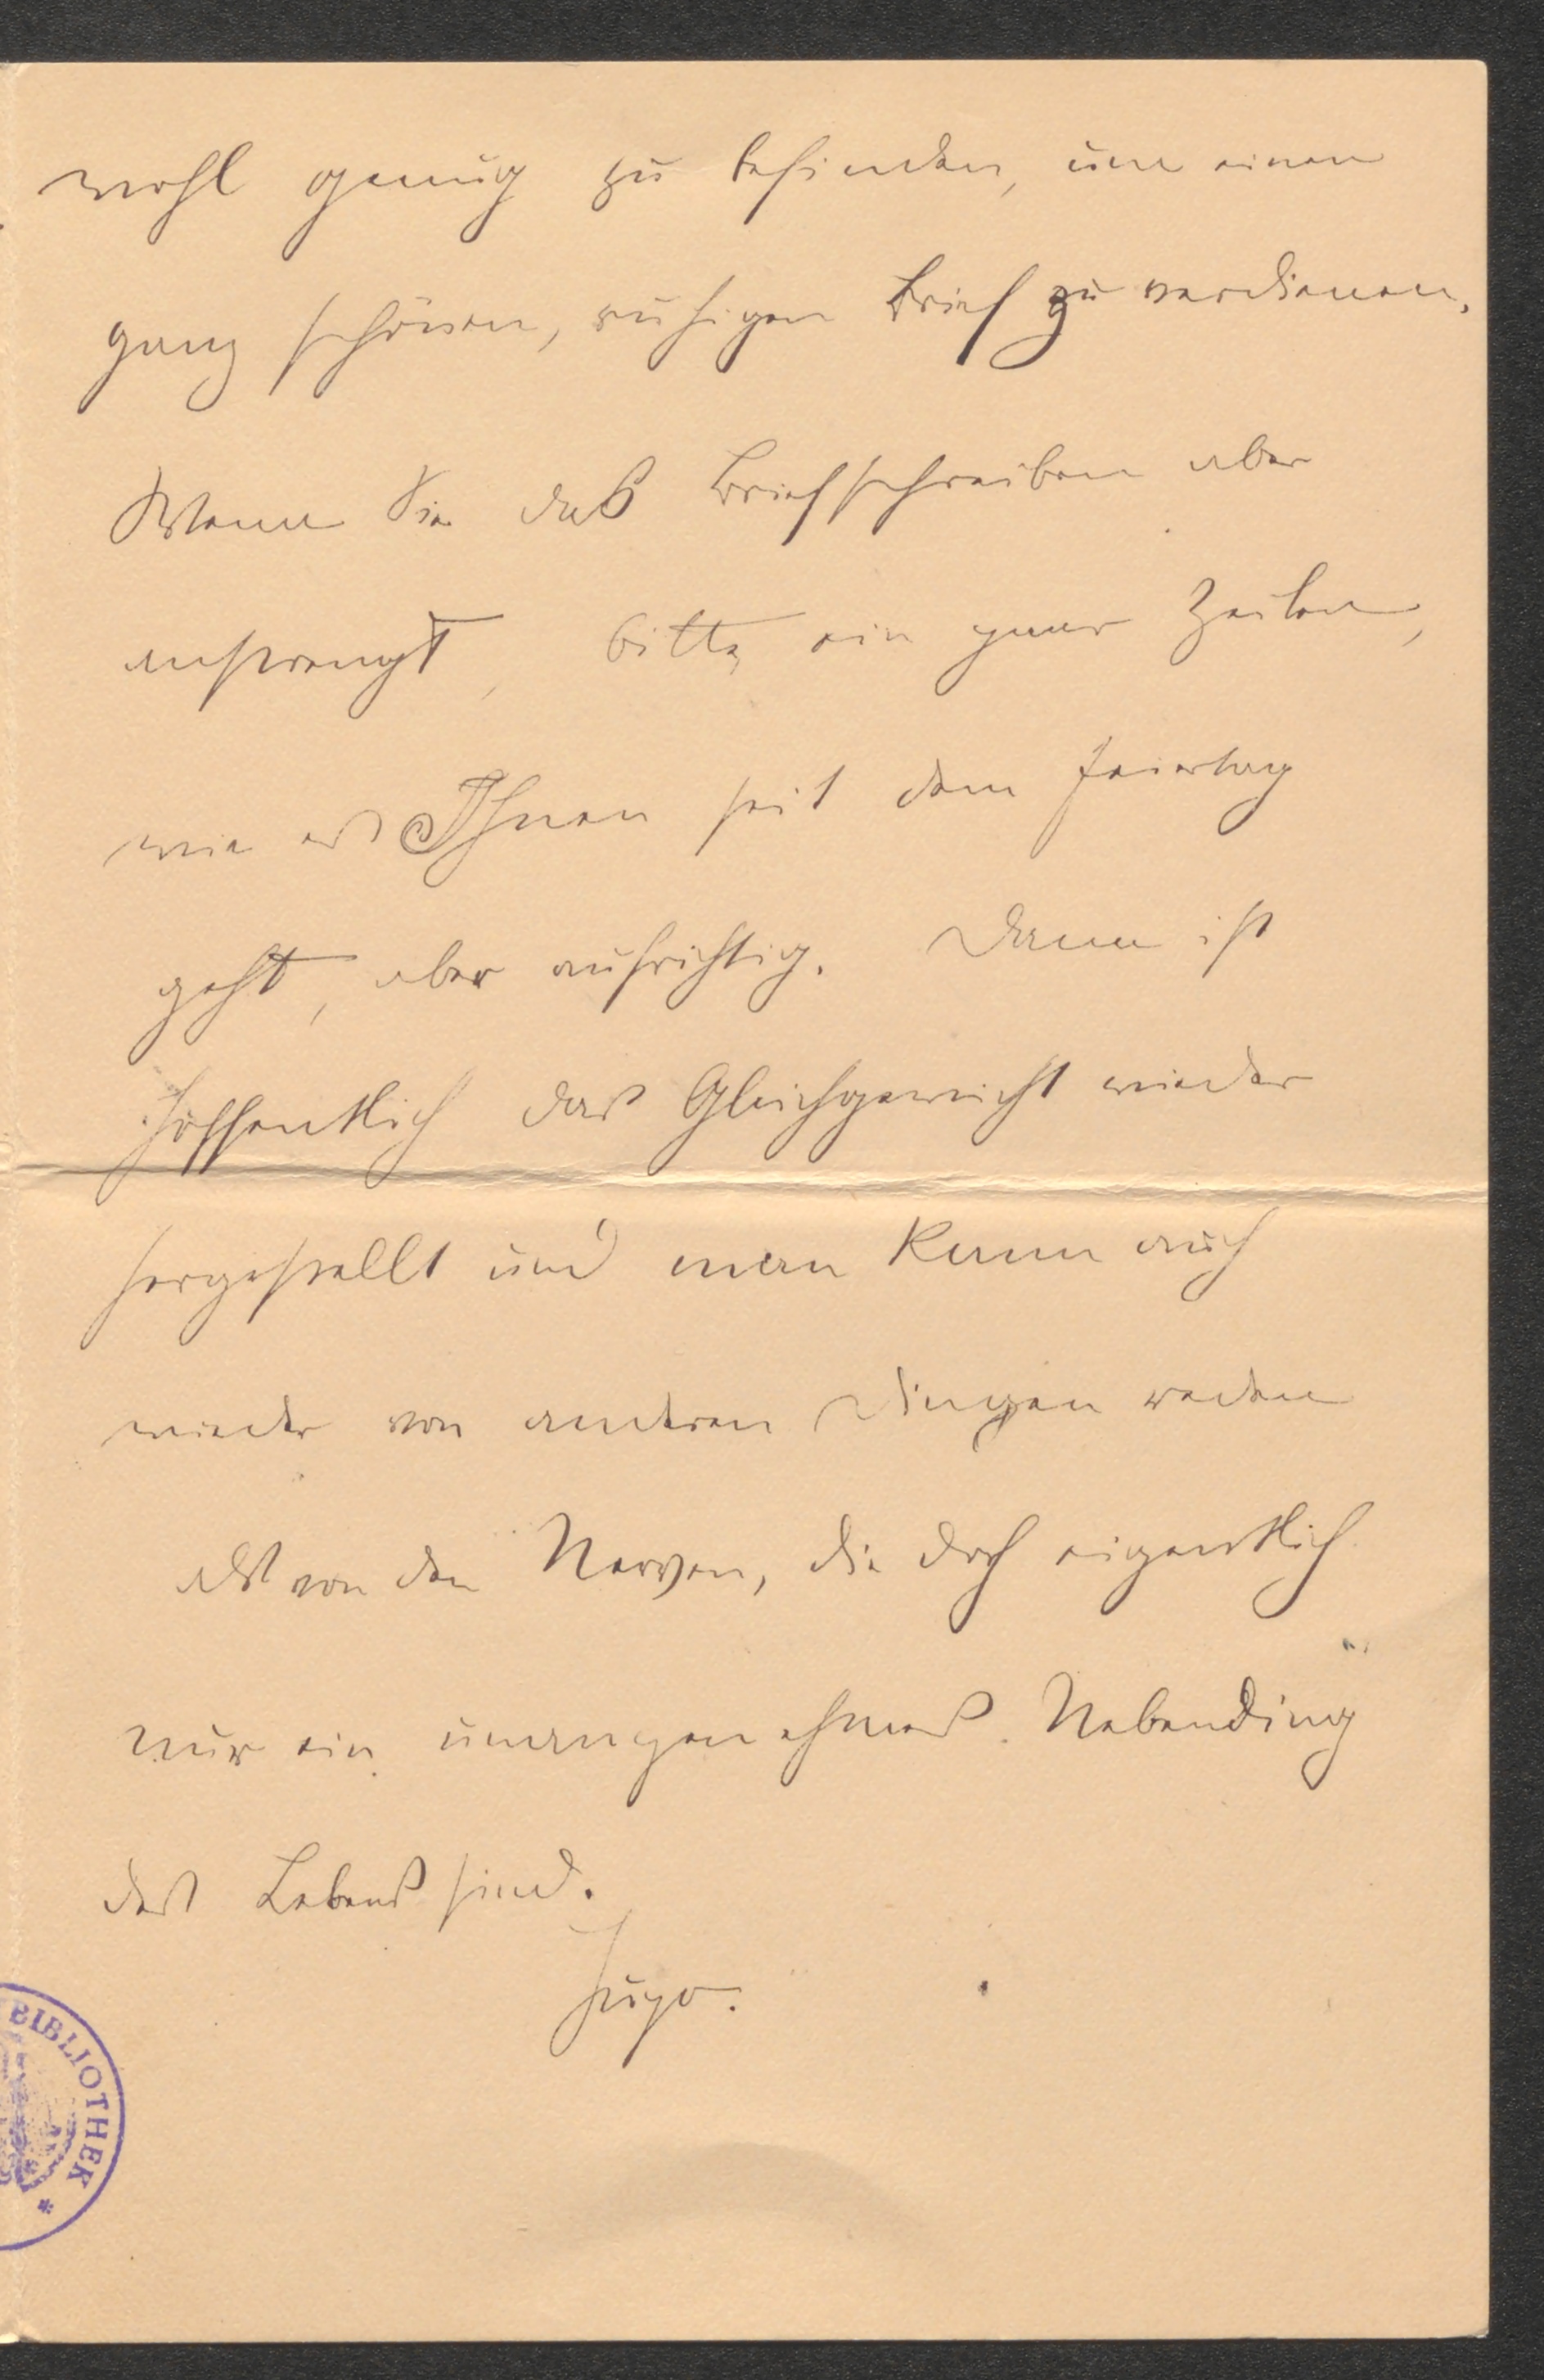 wohl genug zu befinden, um einen
ganz schönen, ruhigen Brief zu verdienen.
Wenn Sie das Briefschreiben aber
anstrengt, bitte ein paar Zeilen,
wie es Ihnen seit dem Feiertag
geht, aber aufrichtig. Dann ist
hoffentlich das Gleichgewicht wieder
hergestellt und man kann auch
wieder von anderen Dingen reden
als von den Nerven, die doch eigentlich
nur ein unangenehmes Nebending
des Lebens sind.
Hugo.
BIBLIOTHEK *